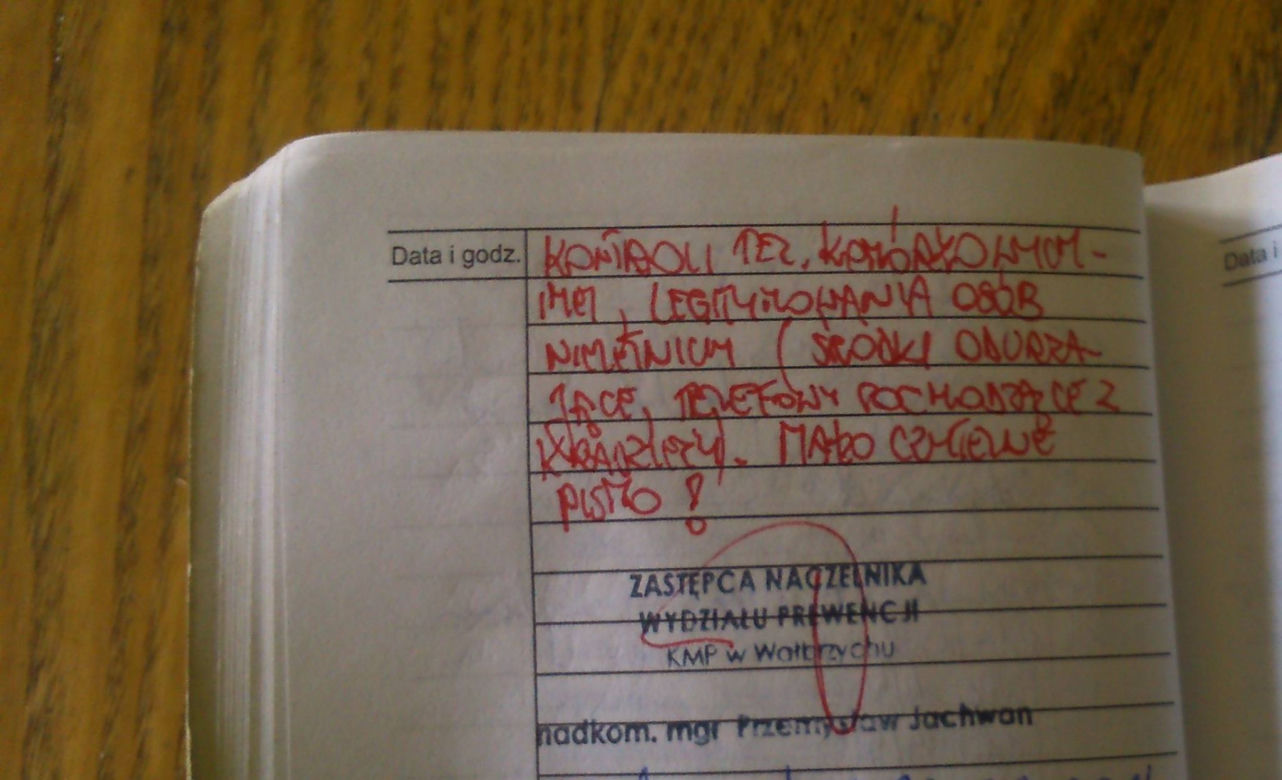 Data i godz. KONTROLI TEL. KOMÓRKOWYCH -
LEGITYMOWANIA OSÓB
NIELETNICH (ŚRODKI ODURZA-
JĄCE, TELEFONY POCHODZĄCE Z
KRADZIEŻY). MAŁO CZYTELNE
PISMO !
ZASTĘPCA NACZELNIKA
WYDZIAŁU PREWENCJI
KMP w Wałbrzychu
nadkom. mgr Przemysław Jachwan
Data i